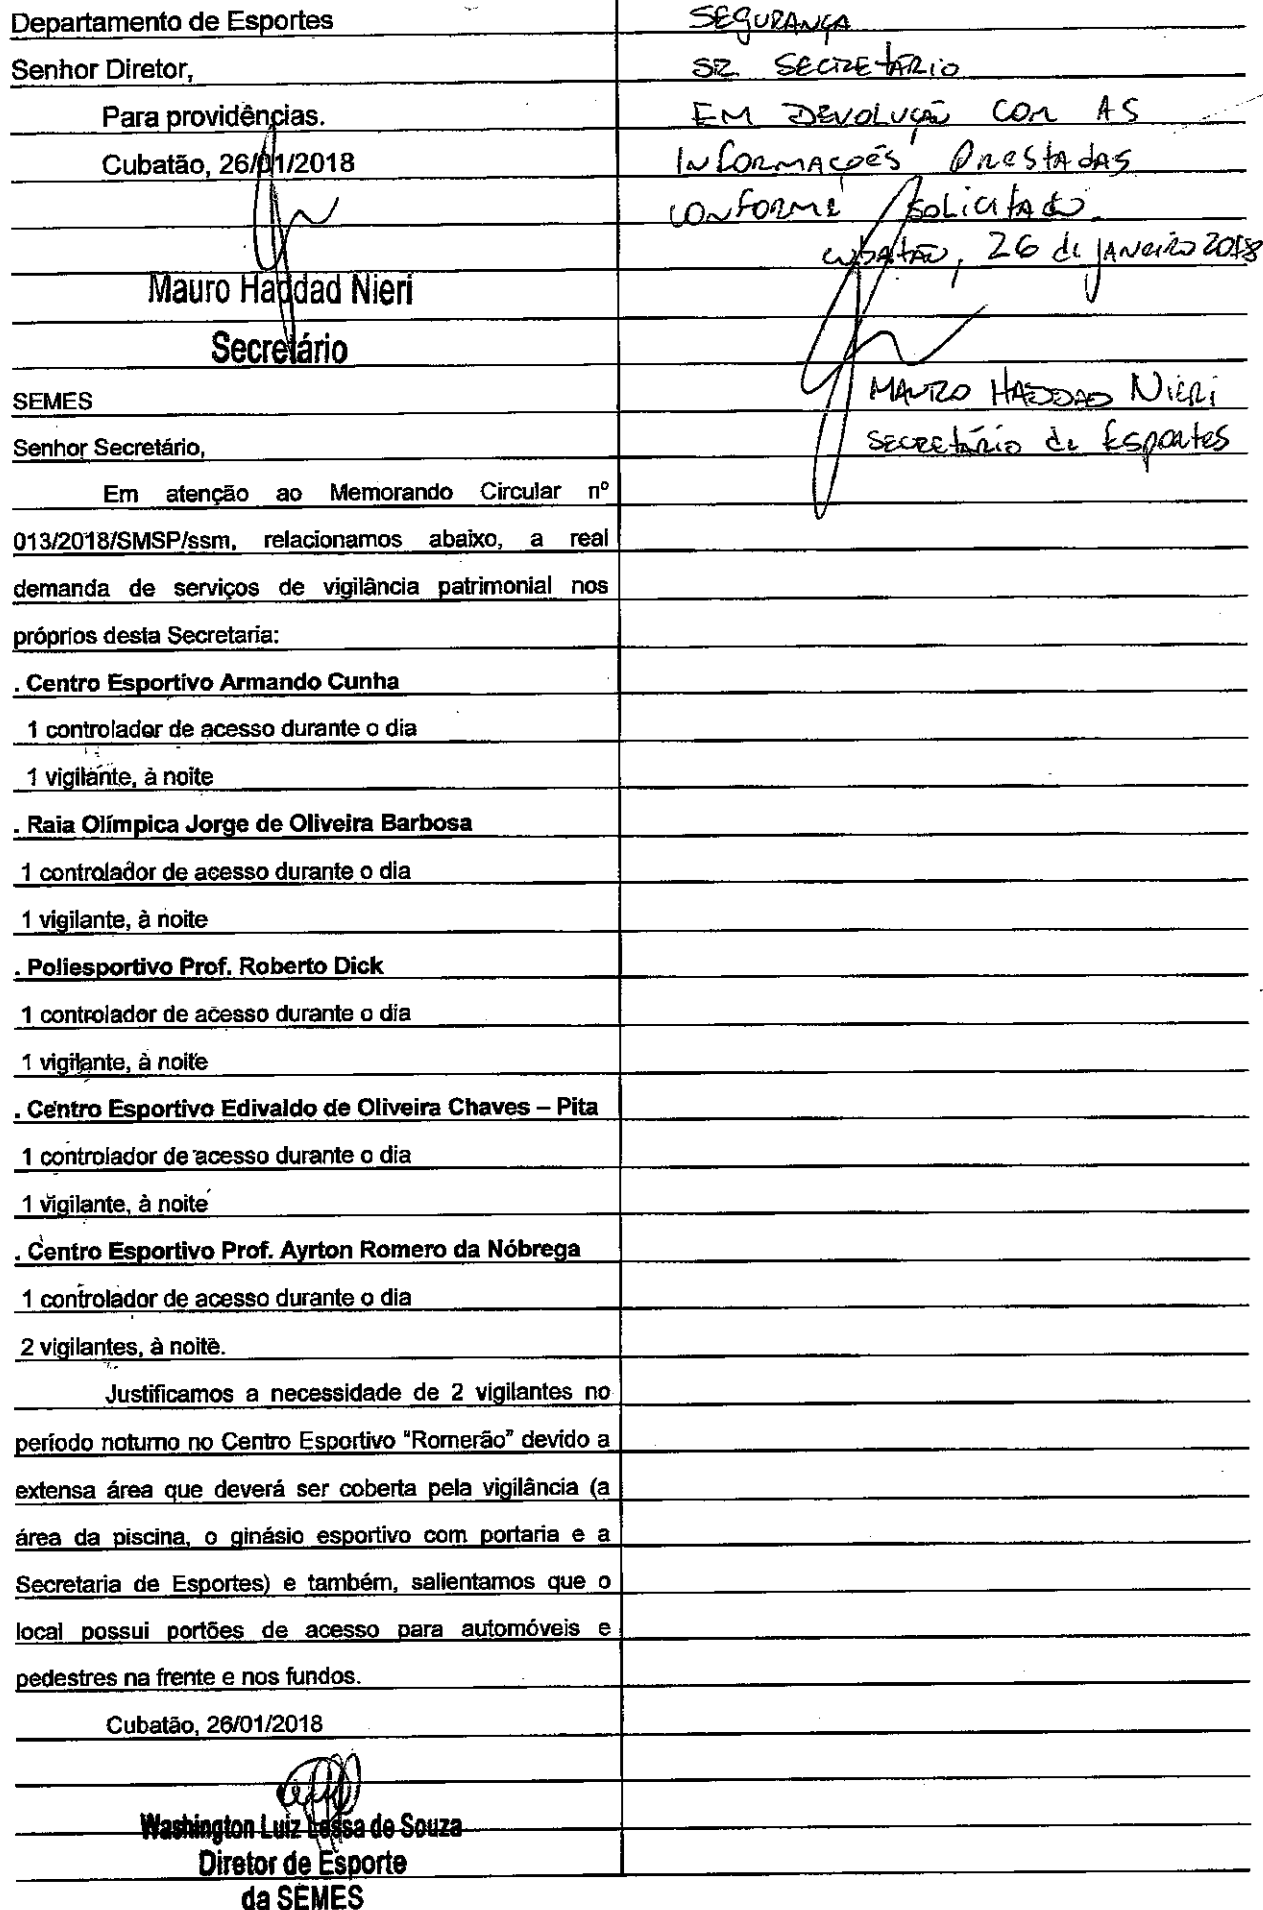 Departamento de Esportes
Senhor Diretor,
Para providências.
Cubatão, 26/01/2018
Mauro Haddad Nieri
Secretário
SEMES
Senhor Secretário,
Em atenção ao Memorando Circular nº
013/2018/SMSP/ssm, relacionamos abaixo, a real
demanda de serviços de vigilância patrimonial nos
próprios desta Secretaria:
. Centro Esportivo Armando Cunha
1 controlador de acesso durante o dia
1 vigilante, à noite
. Raia Olímpica Jorge de Oliveira Barbosa
1 controlador de acesso durante o dia
1 vigilante, à noite
. Poliesportivo Prof. Roberto Dick
1 controlador de acesso durante o dia
1 vigilante, à noite
. Centro Esportivo Edivaldo de Oliveira Chaves – Pita
1 controlador de acesso durante o dia
1 vigilante, à noite
. Centro Esportivo Prof. Ayrton Romero da Nóbrega
1 controlador de acesso durante o dia
2 vigilantes, à noite.
Justificamos a necessidade de 2 vigilantes no
período noturno no Centro Esportivo "Romerão" devido a
extensa área que deverá ser coberta pela vigilância (a
área da piscina, o ginásio esportivo com portaria e a
Secretaria de Esportes) e também, salientamos que o
local possui portões de acesso para automóveis e
pedestres na frente e nos fundos.
Cubatão, 26/01/2018
Washington Luiz Lessa de Souza
Diretor de Esporte
da SEMES
SEGURANÇA
SR. SECRETÁRIO
EM DEVOLUÇÃO COM AS
INFORMAÇÕES PRESTADAS
CONFORME SOLICITADO.
CUBATÃO, 26 de JANEIRO 2018
MAURO HADDAD NIERI
SECRETÁRIO de ESPORTES